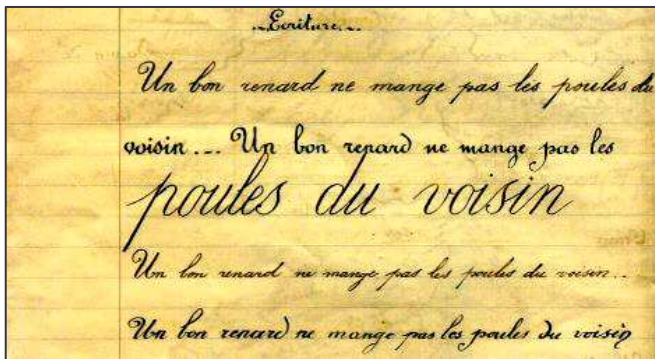 ..Ecriture...
Un bon renard ne mange pas les poules du
voisin ... Un bon renard ne mange pas les
poules du voisin
Un bon renard ne mange pas les poules du voisin..
Un bon renard ne mange pas les poules du voisin